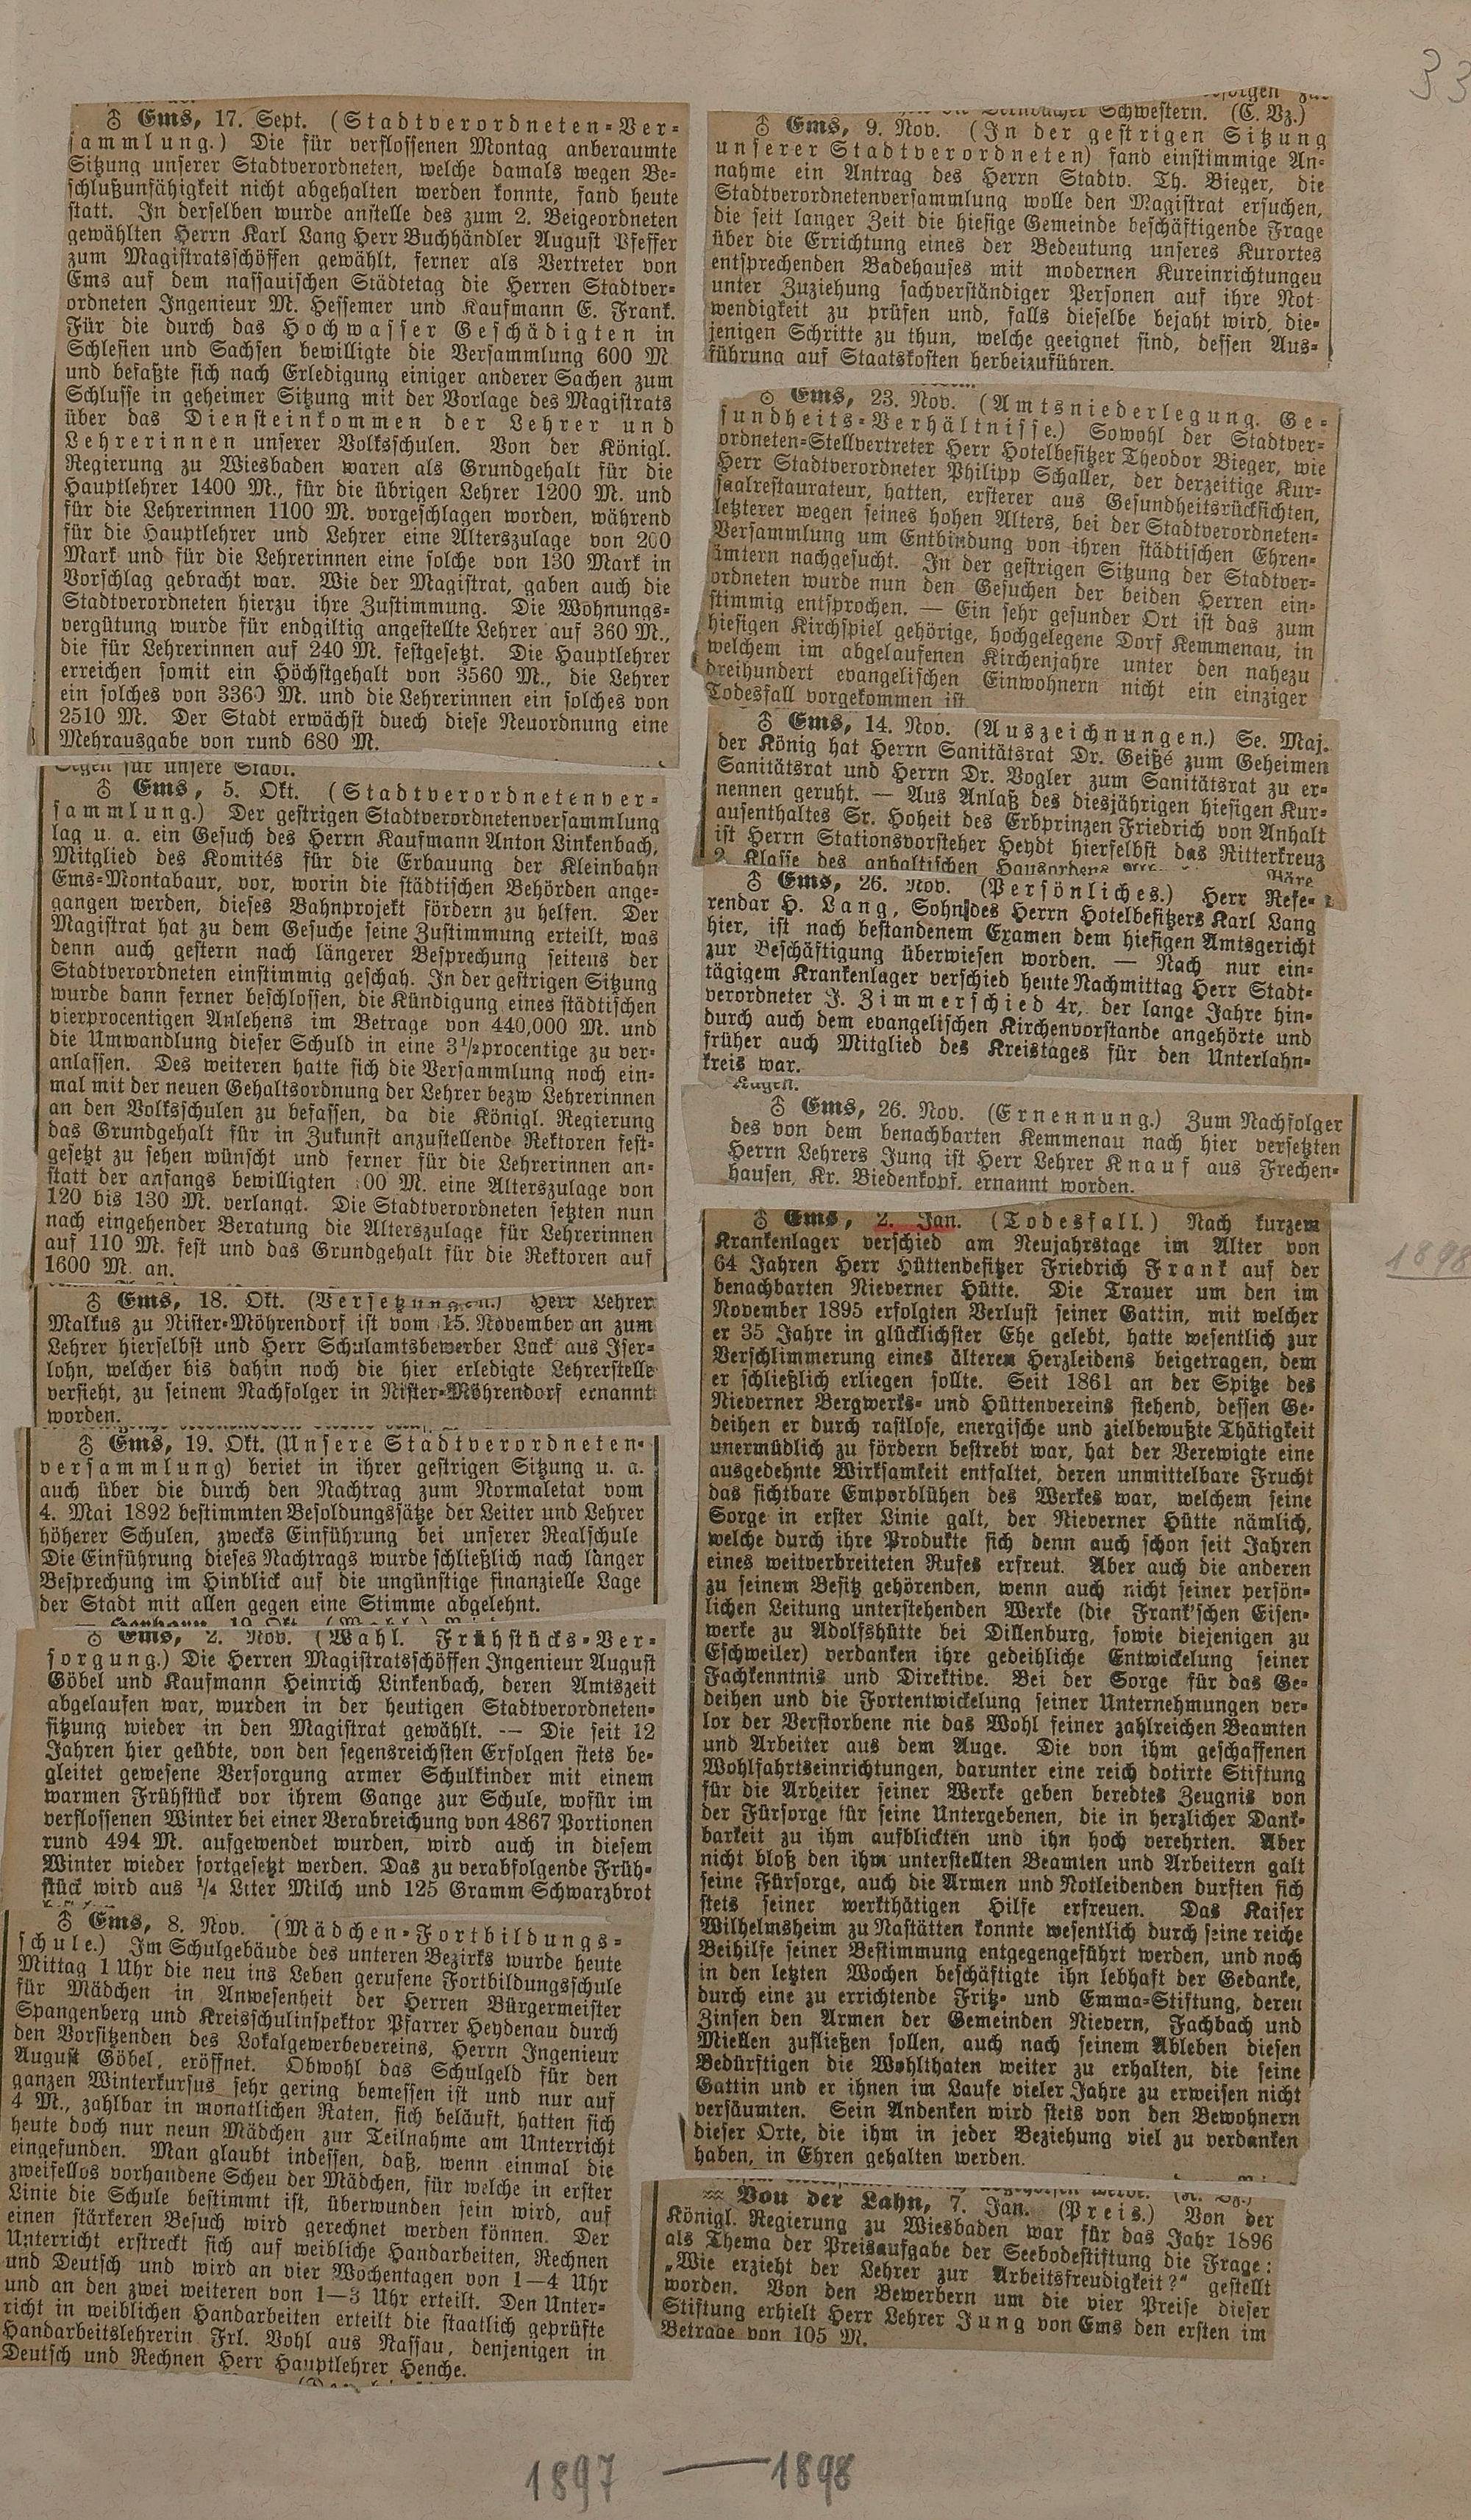 33
♁ Ems, 17. Sept. (Stadtverordneten-Ver-
sammlung.) Die für verflossenen Montag anberaumte
Sitzung unserer Stadtverordneten, welche damals wegen Be-
schlußunfähigkeit nicht abgehalten werden konnte, fand heute
statt. In derselben wurde anstelle des zum 2. Beigeordneten
gewählten Herrn Karl Lang Herr Buchhändler August Pfeffer
zum Magistratsschöffen gewählt, ferner als Vertreter von
Ems auf dem nassauischen Städtetag die Herren Stadtver-
ordneten Ingenieur M. Hessemer und Kaufmann E. Frank.
Für die durch das Hochwasser Geschädigten in
Schlesien und Sachsen bewilligte die Versammlung 600 M
und befaßte sich nach Erledigung einiger anderer Sachen zum
Schlusse in geheimer Sitzung mit der Vorlage des Magistrats
über das Diensteinkommen der Lehrer und
Lehrerinnen unserer Volksschulen. Von der Königl.
Regierung zu Wiesbaden waren als Grundgehalt für die
Hauptlehrer 1400 M., für die übrigen Lehrer 1200 M. und
für die Lehrerinnen 1100 M. vorgeschlagen worden, während
für die Hauptlehrer und Lehrer eine Alterszulage von 200
Mark und für die Lehrerinnen eine solche von 130 Mark in
Vorschlag gebracht war. Wie der Magistrat, gaben auch die
Stadtverordneten hierzu ihre Zustimmung. Die Wohnungs-
vergütung wurde für endgiltig angestellte Lehrer auf 360 M.,
die für Lehrerinnen auf 240 M. festgesetzt. Die Hauptlehrer
erreichen somit ein Höchstgehalt von 3560 M., die Lehrer
ein solches von 3360 M. und die Lehrerinnen ein solches von
2510 M. Der Stadt erwächst duech diese Neuordnung eine
Mehrausgabe von rund 680 M.
Segen für unsere Stadt.
♁ Ems, 5. Okt. (Stadtverordnetenver-
sammlung.) Der gestrigen Stadtverordnetenversammlung
lag u. a. ein Gesuch des Herrn Kaufmann Anton Linkenbach,
Mitglied des Komités für die Erbauung der Kleinbahn
Ems-Montabaur, vor, worin die städtischen Behörden ange-
gangen werden, dieses Bahnprojekt fördern zu helfen. Der
Magistrat hat zu dem Gesuche seine Zustimmung erteilt, was
denn auch gestern nach längerer Besprechung seitens der
Stadtverordneten einstimmig geschah. In der gestrigen Sitzung
wurde dann ferner beschlossen, die Kündigung eines städtischen
vierprocentigen Anlehens im Betrage von 440,000 M. und
die Umwandlung dieser Schuld in eine 3½procentige zu ver-
anlassen. Des weiteren hatte sich die Versammlung noch ein-
mal mit der neuen Gehaltsordnung der Lehrer bezw Lehrerinnen
an den Volksschulen zu befassen, da die Königl. Regierung
das Grundgehalt für in Zukunft anzustellende Rektoren fest-
gesetzt zu sehen wünscht und ferner für die Lehrerinnen an-
statt der anfangs bewilligten 00 M. eine Alterszulage von
120 bis 130 M. verlangt. Die Stadtverordneten setzten nun
nach eingehender Beratung die Alterszulage für Lehrerinnen
auf 110 M. fest und das Grundgehalt für die Rektoren auf
1600 M. an.
♁ Ems, 18. Okt. (Versetzungen.) Herr Lehrer
Malkus zu Nister-Möhrendorf ist vom 15. November an zum
Lehrer hierselbst und Herr Schulamtsbewerber Lack aus Iser-
lohn, welcher bis dahin noch die hier erledigte Lehrerstelle
versieht, zu seinem Nachfolger in Nister-Möhrendorf ernannt
worden.
♁ Ems, 19. Okt. (Unsere Stadtverordneten-
versammlung) beriet in ihrer gestrigen Sitzung u. a.
auch über die durch den Nachtrag zum Normaletat vom
4. Mai 1892 bestimmten Besoldungssätze der Leiter und Lehrer
höherer Schulen, zwecks Einführung bei unserer Realschule
Die Einführung dieses Nachtrags wurde schließlich nach langer
Besprechung im Hinblick auf die ungünstige finanzielle Lage
der Stadt mit allen gegen eine Stimme abgelehnt.
♁ Ems, 2. Nov. (Wahl. Frühstücks-Ver-
sorgung.) Die Herren Magistratsschöffen Ingenieur August
Göbel und Kaufmann Heinrich Linkenbach, deren Amtszeit
abgelaufen war, wurden in der heutigen Stadtverordneten-
sitzung wieder in den Magistrat gewählt. — Die seit 12
Jahren hier geübte, von den segensreichsten Erfolgen stets be-
gleitet gewesene Versorgung armer Schulkinder mit einem
warmen Frühstück vor ihrem Gange zur Schule, wofür im
verflossenen Winter bei einer Verabreichung von 4867 Portionen
rund 494 M. aufgewendet wurden, wird auch in diesem
Winter wieder fortgesetzt werden. Das zu verabfolgende Früh-
stück wird aus ¼ Liter Milch und 125 Gramm Schwarzbrot
♁ Ems, 8. Nov. (Mädchen-Fortbildungs-
schule.) Im Schulgebäude des unteren Bezirks wurde heute
Mittag 1 Uhr die neu ins Leben gerufene Fortbildungsschule
für Mädchen in Anwesenheit der Herren Bürgermeister
Spangenberg und Kreisschulinspektor Pfarrer Heydenau durch
den Vorsitzenden des Lokalgewerbevereins, Herrn Ingenieur
August Göbel, eröffnet. Obwohl das Schulgeld für den
ganzen Winterkursus sehr gering bemessen ist und nur auf
4 M., zahlbar in monatlichen Raten, sich beläuft, hatten sich
heute doch nur neun Mädchen zur Teilnahme am Unterricht
eingefunden. Man glaubt indessen, daß, wenn einmal die
zweifellos vorhandene Scheu der Mädchen, für welche in erster
Linie die Schule bestimmt ist, überwunden sein wird, auf
einen stärkeren Besuch wird gerechnet werden können. Der
Unterricht erstreckt sich auf weibliche Handarbeiten, Rechnen
und Deutsch und wird an vier Wochentagen von 1—4 Uhr
und an den zwei weiteren von 1—3 Uhr erteilt. Den Unter-
richt in weiblichen Handarbeiten erteilt die staatlich geprüfte
Handarbeitslehrerin Frl. Vohl aus Nassau, denjenigen in
Deutsch und Rechnen Herr Hauptlehrer Henche.
Schwestern. (E. Bz.)
♁ Ems, 9. Nov. (In der gestrigen Sitzung
unserer Stadtverordneten) fand einstimmige An-
nahme ein Antrag des Herrn Stadtv. Th. Bieger, die
Stadtverordnetenversammlung wolle den Magistrat ersuchen,
die seit langer Zeit die hiesige Gemeinde beschäftigende Frage
über die Errichtung eines der Bedeutung unseres Kurortes
entsprechenden Badehauses mit modernen Kureinrichtungeu
unter Zuziehung sachverständiger Personen auf ihre Not-
wendigkeit zu prüfen und, falls dieselbe bejaht wird, die-
jenigen Schritte zu thun, welche geeignet sind, dessen Aus-
führung auf Staatskosten herbeizuführen.
♁ Ems, 23. Nov. (Amtsniederlegung. Ge-
sundheits-Verhältnisse.) Sowohl der Stadtver-
ordneten-Stellvertreter Herr Hotelbesitzer Theodor Bieger, wie
Herr Stadtverordneter Philipp Schaller, der derzeitige Kur-
saalrestaurateur, hatten, ersterer aus Gesundheitsrücksichten,
letzterer wegen seines hohen Alters, bei der Stadtverordneten-
Versammlung um Entbindung von ihren städtischen Ehren-
ämtern nachgesucht. In der gestrigen Sitzung der Stadtver-
ordneten wurde nun den Gesuchen der beiden Herren ein-
stimmig entsprochen. — Ein sehr gesunder Ort ist das zum
hiesigen Kirchspiel gehörige, hochgelegene Dorf Kemmenau, in
welchem im abgelaufenen Kirchenjahre unter den nahezu
dreihundert evangelischen Einwohnern nicht ein einziger
Todesfall vorgekommen ist
♁ Ems, 14. Nov. (Auszeichnungen.) Se. Maj.
der König hat Herrn Sanitätsrat Dr. Geißé zum Geheimen
Sanitätsrat und Herrn Dr. Vogler zum Sanitätsrat zu er-
nennen geruht. — Aus Anlaß des diesjährigen hiesigen Kur-
aufenthaltes Sr. Hoheit des Erbprinzen Friedrich von Anhalt
ist Herrn Stationsvorsteher Heydt hierselbst das Ritterkreuz
2. Klasse des anhaltischen Hausordens
♁ Ems, 26. Nov. (Persönliches.) Herr Refe-
rendar H. Lang, Sohn des Herrn Hotelbesitzers Karl Lang
hier, ist nach bestandenem Examen dem hiesigen Amtsgericht
zur Beschäftigung überwiesen worden. — Nach nur ein-
tägigem Krankenlager verschied heute Nachmittag Herr Stadt-
verordneter J. Zimmerschied 4r, der lange Jahre hin-
durch auch dem evangelischen Kirchenvorstande angehörte und
früher auch Mitglied des Kreistages für den Unterlahn-
kreis war.
♁ Ems, 26. Nov. (Ernennung.) Zum Nachfolger
des von dem benachbarten Kemmenau nach hier versetzten
Herrn Lehrers Jung ist Herr Lehrer Knauf aus Frechen-
hausen, Kr. Biedenkopf, ernannt worden.
1898
♁ Ems, 2. Jan. (Todesfall.) Nach kurzem
Krankenlager verschied am Neujahrstage im Alter von
64 Jahren Herr Hüttenbesitzer Friedrich Frank auf der
benachbarten Nieverner Hütte. Die Trauer um den im
November 1895 erfolgten Verlust seiner Gattin, mit welcher
er 35 Jahre in glücklichster Ehe gelebt, hatte wesentlich zur
Verschlimmerung eines älteren Herzleidens beigetragen, dem
er schließlich erliegen sollte. Seit 1861 an der Spitze des
Nieverner Bergwerks- und Hüttenvereins stehend, dessen Ge-
deihen er durch rastlose, energische und zielbewußte Thätigkeit
unermüdlich zu fördern bestrebt war, hat der Verewigte eine
ausgedehnte Wirksamkeit entfaltet, deren unmittelbare Frucht
das sichtbare Emporblühen des Werkes war, welchem seine
Sorge in erster Linie galt, der Nieverner Hütte nämlich,
welche durch ihre Produkte sich denn auch schon seit Jahren
eines weitverbreiteten Rufes erfreut. Aber auch die anderen
zu seinem Besitz gehörenden, wenn auch nicht seiner persön-
lichen Leitung unterstehenden Werke (die Frank'schen Eisen-
werke zu Adolfshütte bei Dillenburg, sowie diejenigen zu
Eschweiler) verdanken ihre gedeihliche Entwickelung seiner
Fachkenntnis und Direktive. Bei der Sorge für das Ge-
deihen und die Fortentwickelung seiner Unternehmungen ver-
lor der Verstorbene nie das Wohl seiner zahlreichen Beamten
und Arbeiter aus dem Auge. Die von ihm geschaffenen
Wohlfahrtseinrichtungen, darunter eine reich dotirte Stiftung
für die Arbeiter seiner Werke geben beredtes Zeugnis von
der Fürsorge für seine Untergebenen, die in herzlicher Dank-
barkeit zu ihm aufblickten und ihn hoch verehrten. Aber
nicht bloß den ihm unterstellten Beamten und Arbeitern galt
seine Fürsorge, auch die Armen und Notleidenden durften sich
stets seiner werkthätigen Hilfe erfreuen. Das Kaiser
Wilhelmsheim zu Nastätten konnte wesentlich durch seine reiche
Beihilfe seiner Bestimmung entgegengeführt werden, und noch
in den letzten Wochen beschäftigte ihn lebhaft der Gedanke,
durch eine zu errichtende Fritz- und Emma-Stiftung, deren
Zinsen den Armen der Gemeinden Nievern, Fachbach und
Miellen zufließen sollen, auch nach seinem Ableben diesen
Bedürftigen die Wohlthaten weiter zu erhalten, die seine
Gattin und er ihnen im Laufe vieler Jahre zu erweisen nicht
versäumten. Sein Andenken wird stets von den Bewohnern
dieser Orte, die ihm in jeder Beziehung viel zu verdanken
haben, in Ehren gehalten werden.
Von der Lahn, 7. Jan. (Preis.) Von der
Königl. Regierung zu Wiesbaden war für das Jahr 1896
als Thema der Preisaufgabe der Seebodestiftung die Frage:
„Wie erzieht der Lehrer zur Arbeitsfreudigkeit?“ gestellt
worden. Von den Bewerbern um die vier Preise dieser
Stiftung erhielt Herr Lehrer Jung von Ems den ersten im
Betrage von 105 M.
1897 — 1898